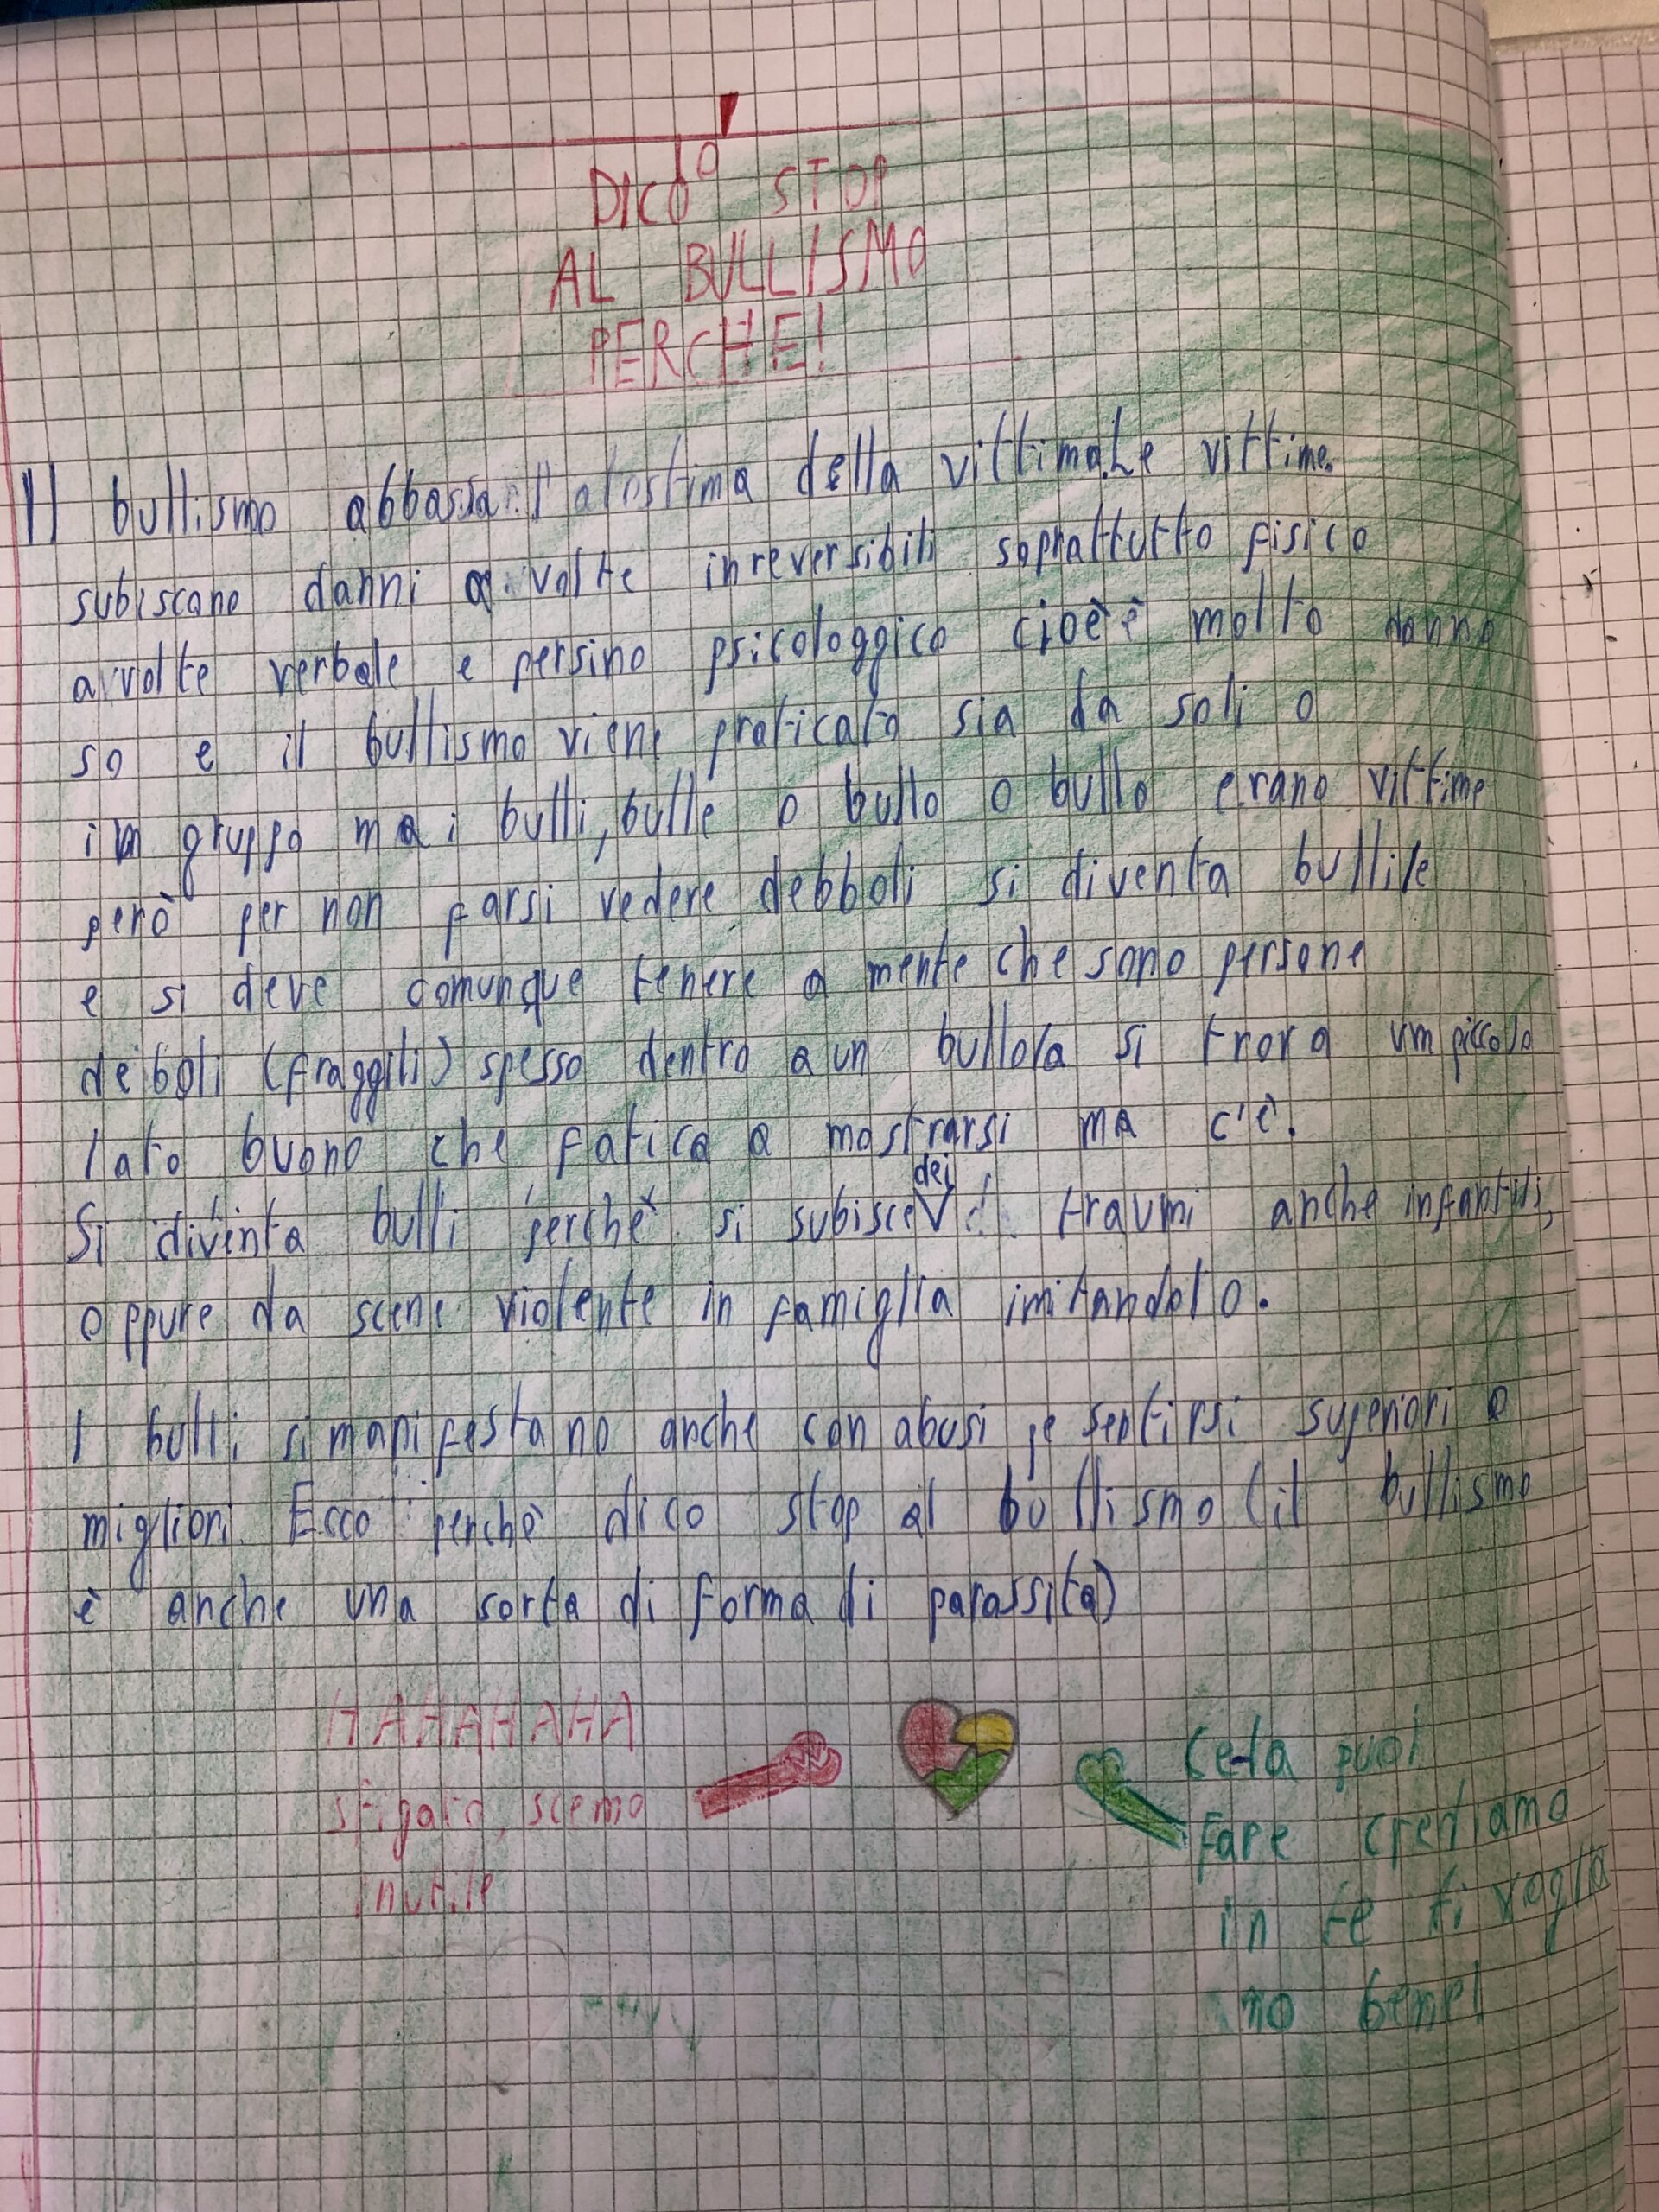 IO
DICO STOP
AL BULLISMO
PERCHE!
Il bullismo abbassa l'atostima della vittima. Le vittime
subiscono danni a volte inreversibili soprattutto fisico
avvolte verbale e persino psicologgico cioè è molto danno
so e il bullismo viene praticato sia da soli o
in gruppo ma i bulli, bulle o bullo o bulla erano vittime
però per non farsi vedere debboli si diventa bulli/e
e si deve comunque tenere a mente che sono persone
deboli (fraggili) spesso dentro a un bullo/a si trova un piccolo
lato buono che fatica a mostrarsi ma c'è.
Si diventa bulli perchè si subisce dei traumi anche infantili,
oppure da scene violente in famiglia imitandolo.
I bulli si manifestano anche con abusi pe sentirsi superiori o
migliori. Ecco perchè dico stop al bullismo (il bullismo
è anche una sorta di forma di parassita)
HAHAHAHA
sfigato, scemo
inutile
Ce la puoi
fare crediamo
in te ti voglia
mo bene!